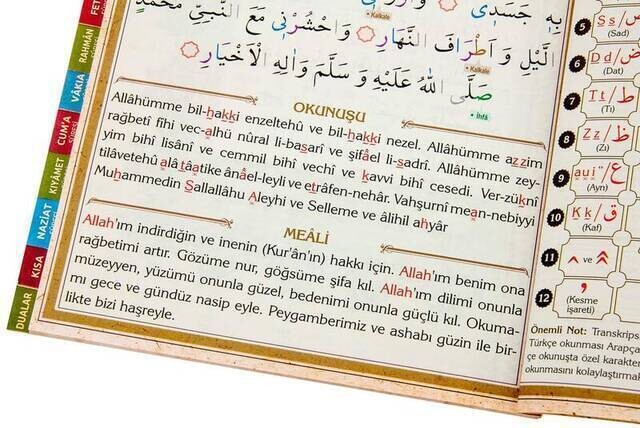 بِهِ جَسَدِى
الَّيْلِ وَ اَطْرَافَ النَّهَارِ وَاحْشُرْنِى مَعَ النَّبِىِّ مُحَمَّدٍ
صَلَّى اللهُ عَلَيْهِ وَ سَلَّمَ وَاٰلِهِ الْاَخْيَارِ
Kalkale
Kalkale
İhfâ
OKUNUŞU
Allâhümme bil-hakki enzeltehû ve bil-hakki nezel. Allâhümme azzim
rağbetî fîhi vec-alhü nûral li-basarî ve şifâel li-sadrî. Allâhümme zey-
yim bihî lisânî ve cemmil bihî vechî ve kavvi bihî cesedî. Ver-züknî
tilâvetehû alâ tâatike ânâel-leyli ve etrâfen-nehâr. Vahşurnî mean-nebiyyi
Muhammedin Sallallâhu Aleyhi ve Selleme ve âlihil ahyâr
MEÂLİ
Allah'ım indirdiğin ve inenin (Kur'ân'ın) hakkı için. Allah'ım benim ona
rağbetimi artır. Gözüme nur, göğsüme şifa kıl. Allah'ım dilimi onunla
müzeyyen, yüzümü onunla güzel, bedenimi onunla güçlü kıl. Okuma-
mı gece ve gündüz nasip eyle. Peygamberimiz ve ashabı güzin ile bir-
likte bizi haşreyle.
FET
RAHMÂN
VÂKIA
CUM'A
KIYÂMET
NAZİAT
KISA
DUALAR
5 Ss/ص
(Sad)
6 Dd/ض
(Dat)
7 Tt/ط
(Tı)
8 Zz/ظ
(Zı)
9 auı/ع
(Ayn)
10 Kk/ق
(Kaf)
11 ve
12 (Kesme
işareti)
Önemli Not: Transkrips
Türkçe okunması Arapça
çe okunuşta özel karakter
okunmasını kolaylaştırmak